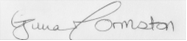 June Ormston